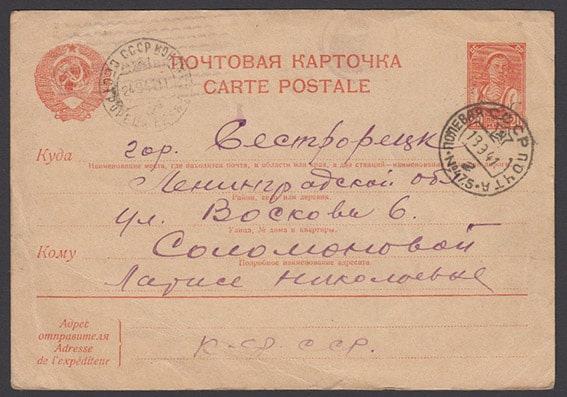 ПОЧТОВАЯ КАРТОЧКА
CARTE POSTALE
СССР
24941
ПОЛЕВАЯ СССР ПОЧТА
№475
13 9 41
Куда
гор. Сестрорецк
Наименование места, где находится почта, и области или края, а для станций—наименование
Ленинградской обл
Район, село или деревня.
ул. Воскова 6.
Улица, № дома и квартиры.
Кому
Соломоновой
Подробное наименование адресата.
Ларисе Николаевне
Адрес
отправителя
Adresse
de l'expéditeur
К-СФ. ССР.